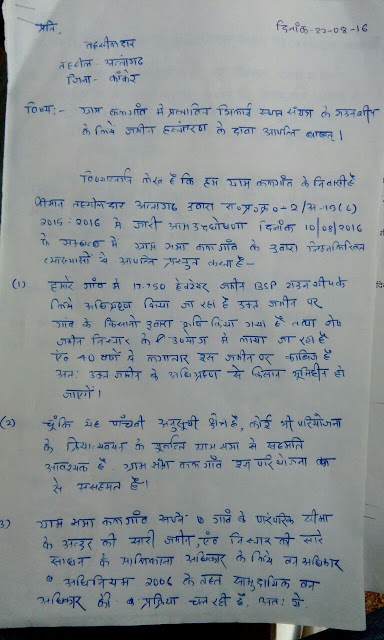 प्रति,
दिनांक-22-08-16
तहसीलदार
तहसील- अन्तागढ़
जिला- कांकेर
विषय:- ग्राम कलगाँव में प्रस्तावित भिलाई स्पात संयंत्र के टाउनशीप
के लिये जमीन हस्तांतरण के दावा आपत्ति बाबत्।
विषयान्तर्गत लेख है कि हम ग्राम कलगाँव के निवासी हैं
श्रीमान तहसीलदार अन्तागढ़ द्वारा रा०प्र०क्र० 2/अ-19(6)
2015-2016 में जारी ग्राम उदघोषणा दिनांक 10/08/2016
के सम्बन्ध में ग्राम सभा कलगाँव के द्वारा निम्नलिखित
से आपत्ति प्रस्तुत करता है-
(1) हमारे गाँव में 17.750 हेक्टेयर जमीन BSP टाउनशीप के
लिये अधिग्रहण किया जा रहा है उक्त जमीन पर
गाँव के किसानों द्वारा कृषि किया गया है तथा शेष
जमीन निस्तार के उपयोग में लाया जा रहा है
एवं 40 वर्षों से लगातार इस जमीन पर काबिज हैं
अतः उक्त जमीन के अधिग्रहण से किसान भूमिहीन हो
जाएंगे।
(2) चूंकि यह पाँचवी अनुसूची क्षेत्र है, कोई भी परियोजना
के क्रियान्वयन के पूर्व ग्राम सभा से सहमति
आवश्यक है। ग्राम सभा कलगाँव इस परियोजना
से असहमत है।
3) ग्राम सभा कलगाँव अपने गाँव के पारंपरिक सीमा
के अन्दर की सारी जमीन, एवं निस्तार की सारे
साधन के मालिकाना अधिकार के लिये वन अधिकार
अधिनियम 2006 के तहत सामुदायिक वन
अधिकार की प्रक्रिया चल रही है, अतः ये